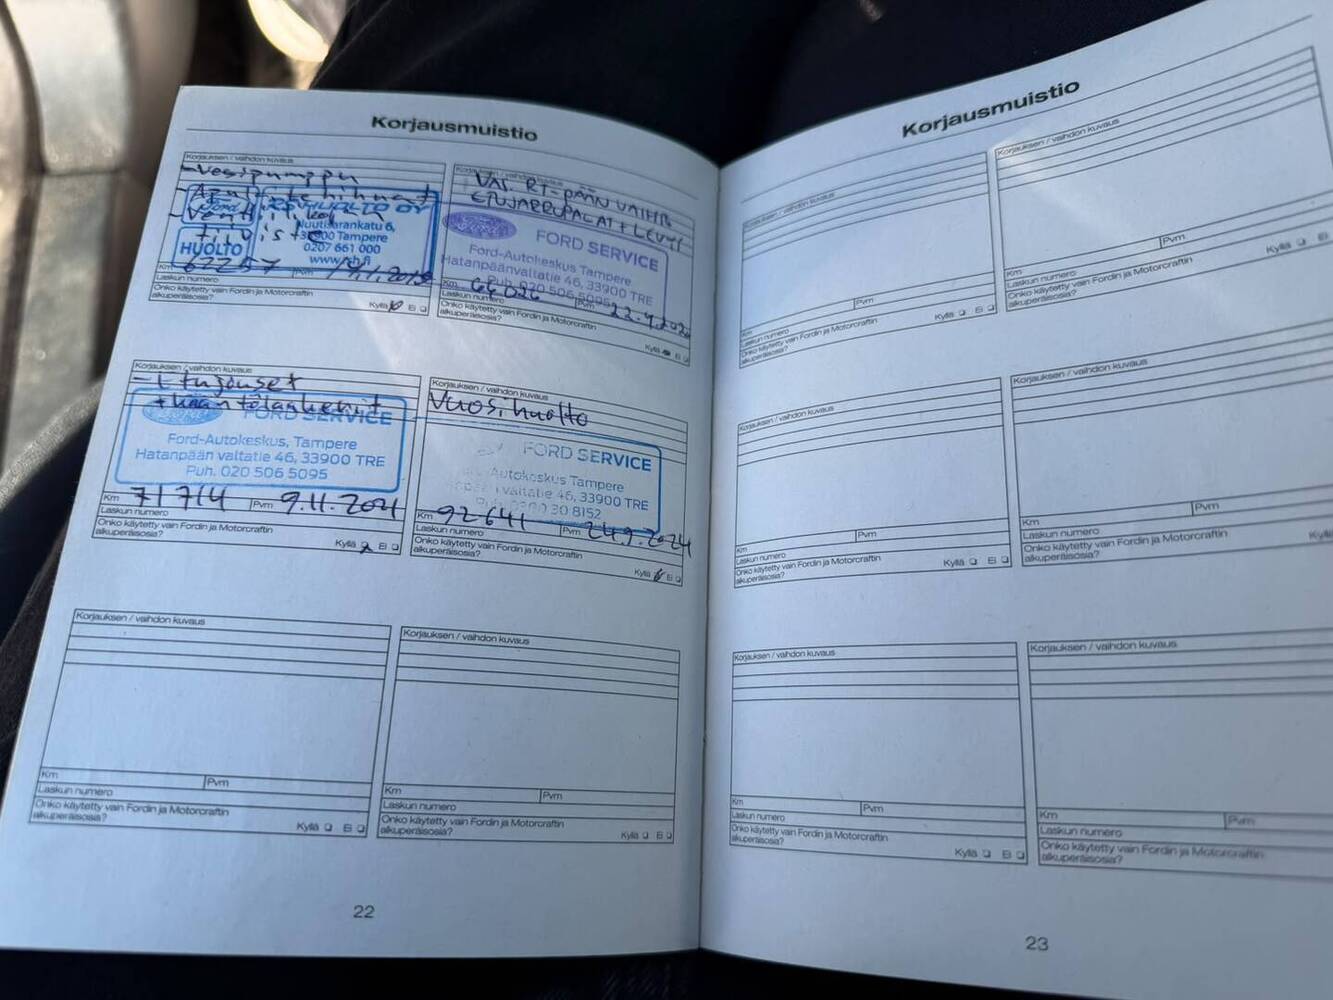 Korjausmuistio
Korjauksen / vaihdon kuvaus
-Vesipumppu
Ford
HUOLTO
Nuutisarankatu 6,
33900 Tampere
0207 661 000
Km 67257 Pvm
Laskun numero
Onko käytetty vain Fordin ja Motorcraftin
alkuperäisosia?
Kyllä Ei
Korjauksen / vaihdon kuvaus
VAS. RT-PÄÄN VAIHTO
ETUJARRUPALAT + LEVYT
FORD SERVICE
Ford-Autokeskus Tampere
Hatanpäänvaltatie 46, 33900 TRE
Puh. 020 506 5095
Km Pvm
Laskun numero
Onko käytetty vain Fordin ja Motorcraftin
alkuperäisosia?
Kyllä Ei
Korjauksen / vaihdon kuvaus
FORD SERVICE
Ford-Autokeskus, Tampere
Hatanpään valtatie 46, 33900 TRE
Puh. 020 506 5095
Km 71714 Pvm 9.11.2021
Laskun numero
Onko käytetty vain Fordin ja Motorcraftin
alkuperäisosia?
Kyllä Ei
Korjauksen / vaihdon kuvaus
Vuosihuolto
FORD SERVICE
Autokeskus Tampere
valtatie 46, 33900 TRE
30 8152
Km 92641 Pvm 24.9.2024
Laskun numero
Onko käytetty vain Fordin ja Motorcraftin
alkuperäisosia?
Kyllä Ei
Korjauksen / vaihdon kuvaus
Km Pvm
Laskun numero
Onko käytetty vain Fordin ja Motorcraftin
alkuperäisosia?
Kyllä Ei
Korjauksen / vaihdon kuvaus
Km Pvm
Laskun numero
Onko käytetty vain Fordin ja Motorcraftin
alkuperäisosia?
Kyllä Ei
22
Korjausmuistio
Korjauksen / vaihdon kuvaus
Km Pvm
Laskun numero
Onko käytetty vain Fordin ja Motorcraftin
alkuperäisosia?
Kyllä Ei
Korjauksen / vaihdon kuvaus
Km Pvm
Laskun numero
Onko käytetty vain Fordin ja Motorcraftin
alkuperäisosia?
Kyllä Ei
Korjauksen / vaihdon kuvaus
Km Pvm
Laskun numero
Onko käytetty vain Fordin ja Motorcraftin
alkuperäisosia?
Kyllä Ei
Korjauksen / vaihdon kuvaus
Km Pvm
Laskun numero
Onko käytetty vain Fordin ja Motorcraftin
alkuperäisosia?
Korjauksen / vaihdon kuvaus
Km Pvm
Laskun numero
Onko käytetty vain Fordin ja Motorcraftin
alkuperäisosia?
Kyllä Ei
Korjauksen / vaihdon kuvaus
Km Pvm
Laskun numero
Onko käytetty vain Fordin ja Motorcraftin
alkuperäisosia?
23